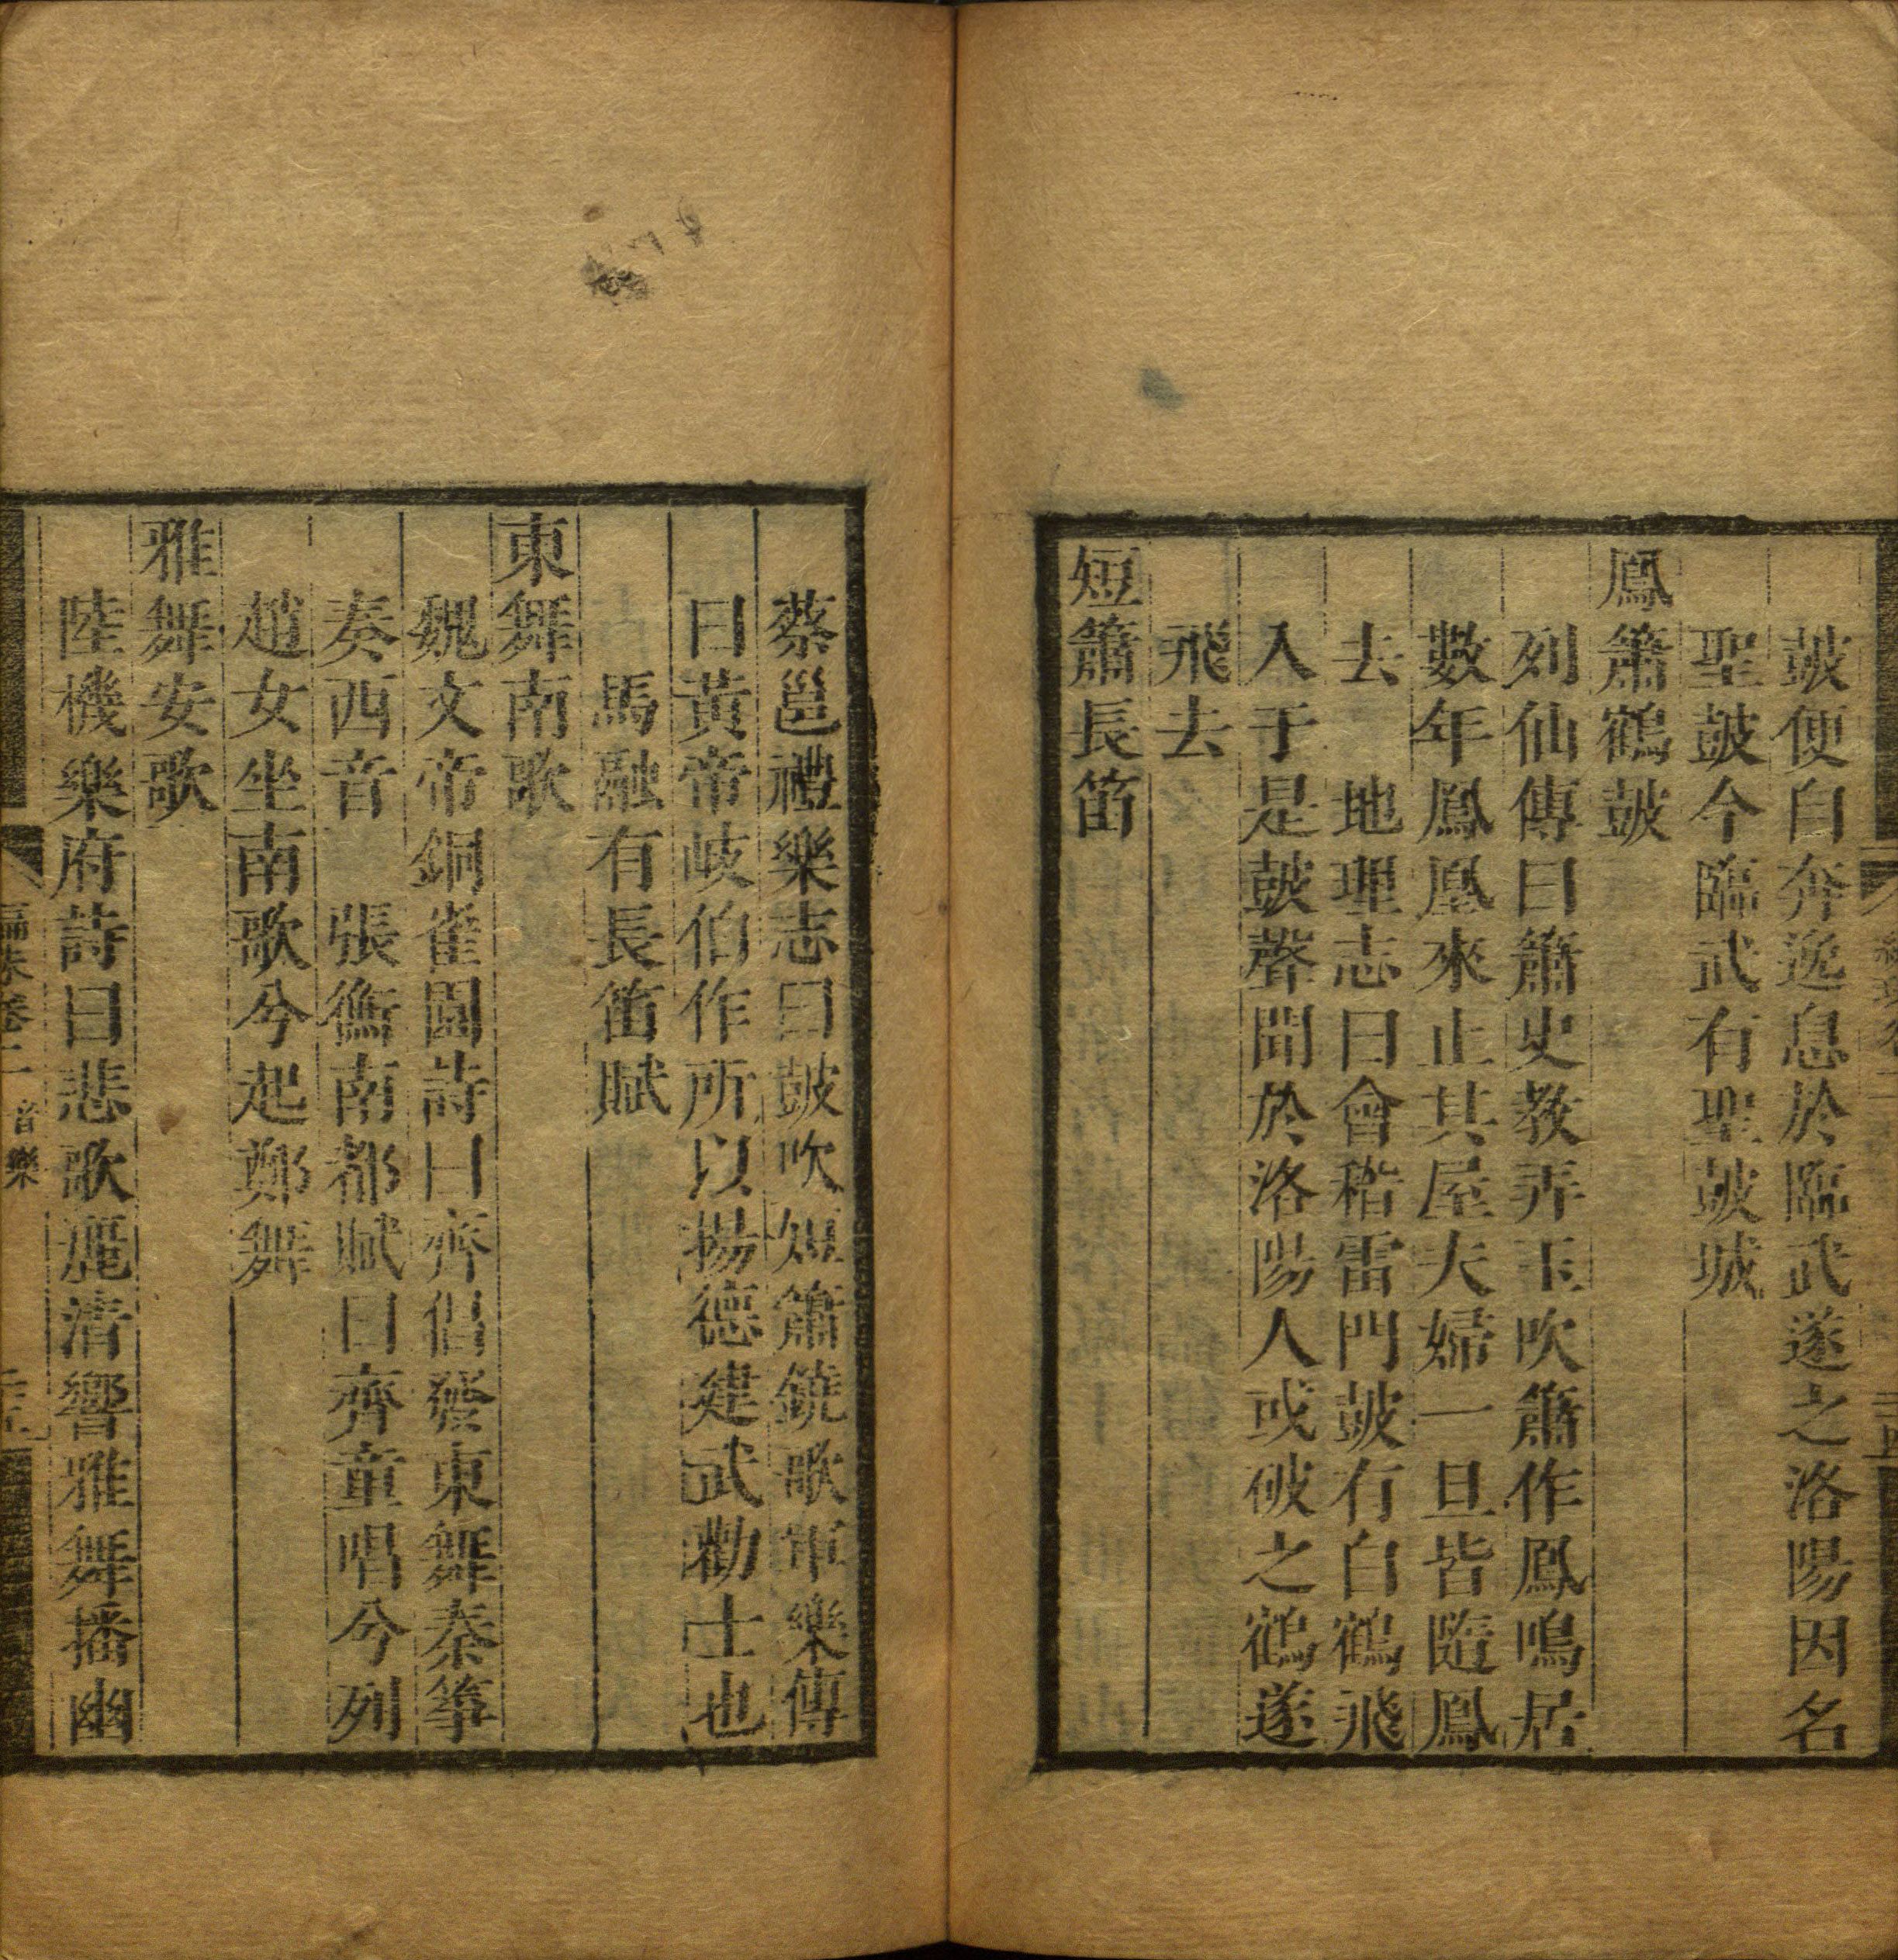 鼓便自奔逸息於臨武遂之洛陽因名
聖鼓今臨武有聖鼓城
鳳簫鶴鼓
列仙傳曰簫史教弄玉吹簫作鳳鳴居
數年鳳凰來止其屋夫婦一旦皆隨鳳
去　地理志曰會稽雷門鼓有白鶴飛
入于是鼓聲聞於洛陽人或破之鶴遂
飛去
短簫長笛
蔡邕禮樂志曰鼓吹短簫鐃歌軍樂傳
曰黃帝岐伯作所以揚德建武勸士也
馬融有長笛賦
東舞南歌
魏文帝銅雀園詩曰齊倡發東舞秦箏
奏西音　張衡南都賦曰齊童唱兮列
趙女坐南歌兮起鄭舞
雅舞安歌
陸機樂府詩曰悲歌厖清響雅舞播幽
編珠卷二　音樂